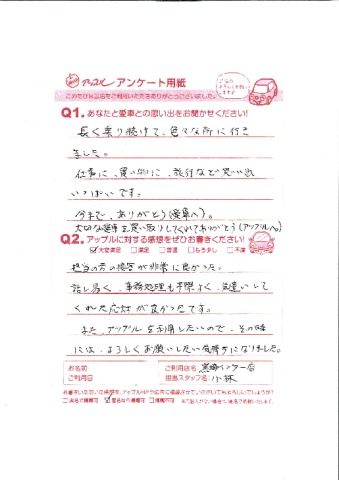 アップル アンケート用紙
このたびは当店をご利用いただきありがとうございました。
Q1. あなたと愛車との思い出をお聞かせください!
長く乗り続けて、色々な所に行き
ました。
仕事に、買い物に、旅行など思い出
いっぱいです。
今まで、ありがとう(愛車へ)。
大切な愛車を買い取りしてくれてありがとう(アップルへ)
Q2. アップルに対する感想をぜひお書きください!
☑大変満足 □満足 □普通 □もう少し □不満
担当の方の接客が非常に良かった。
話し易く、事務処理も手際よく、気遣いして
くれた応対が良かったです。
また、アップルを利用したいので、その時
には、よろしくお願いしたい気持ちになりました。
お名前
ご利用日
ご利用店名 黒崎インター店
担当スタッフ名 小林
お書きいただいた感想を、アップルHPや広告に掲載させていただいてもよろしいでしょうか?
□実名で掲載可 ☑匿名なら掲載可 □掲載不可